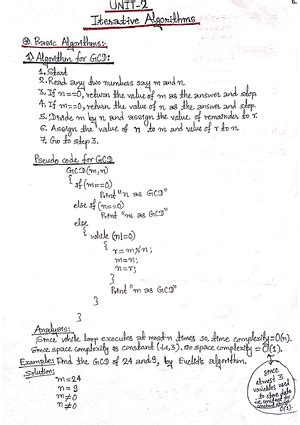 UNIT-2
Iterative Algorithms
Basic Algorithms:
1) Algorithm for GCD:
1. Start
2. Read any two numbers say m and n.
3. If n==0, return the value of m as the answer and stop
4. If m==0, return the value of n as the answer and stop.
5. Divide m by n and assign the value of remainder to r.
6. Assign the value of n to m and value of r to n.
7. Go to step 3.
Pseudo code for GCD
GCD(m,n)
{ if (m==0)
Print "n as GCD"
else if (n==0)
Print "m as GCD"
else
{ while (n!=0)
{ r = m%n;
m=n;
n=r;
}
Print "m as GCD"
}
}
Analysis:
Since while loop executes at most n times so, time complexity=O(n).
Since space complexity is constant (i.e, 3), so space complexity = O(1).
Example: Find the GCD of 24 and 9, by Euclid's algorithm.
Solution:
m=24
n=9
m≠0
n≠0
since
atmost 3
variables used
to store data
O(1).